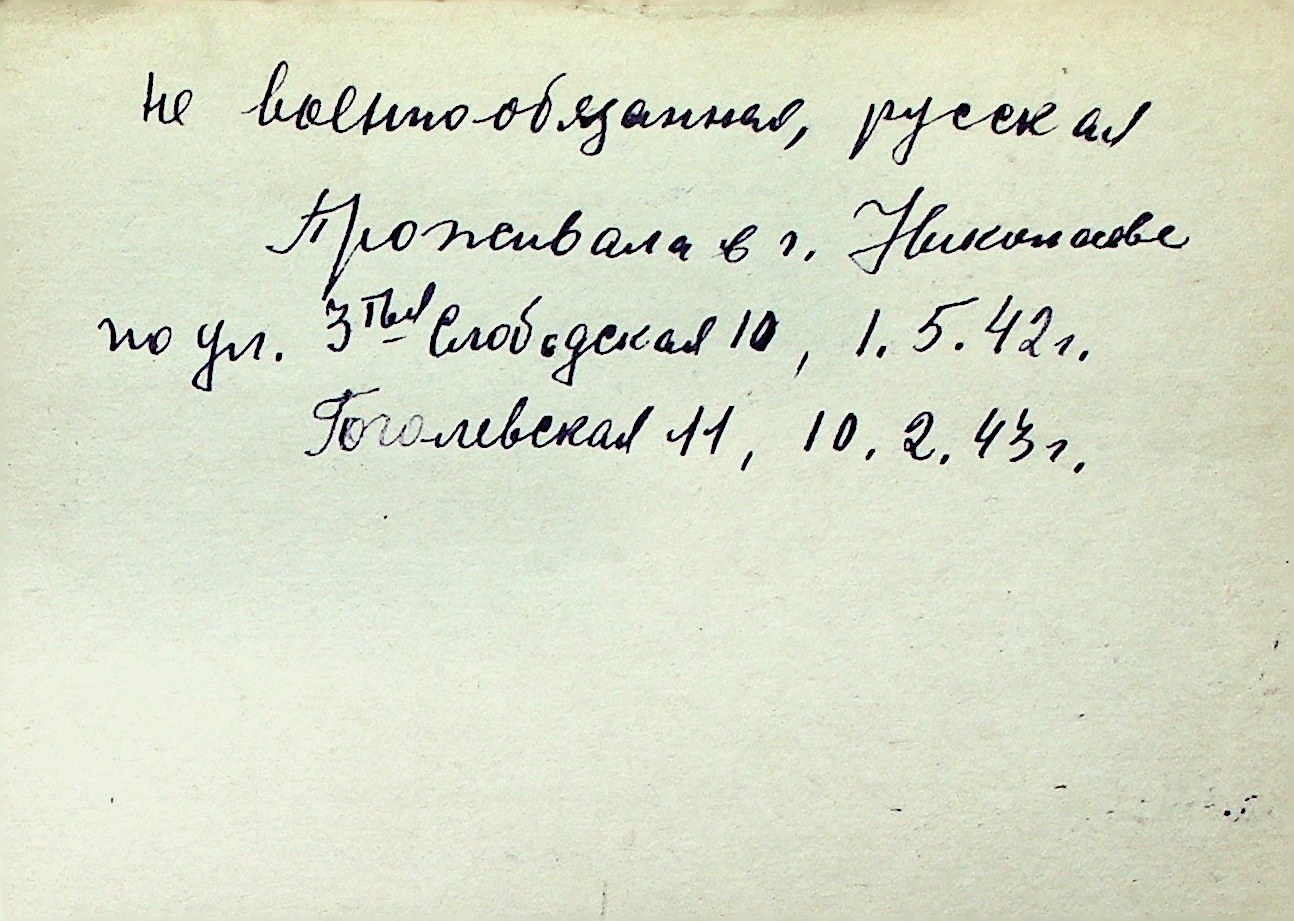 не военнообязанная, русская
Проживала в г. Николаеве
по ул. 3тья Слободская 10, 1.5.42г.
Гоголевская 11, 10.2.43г.